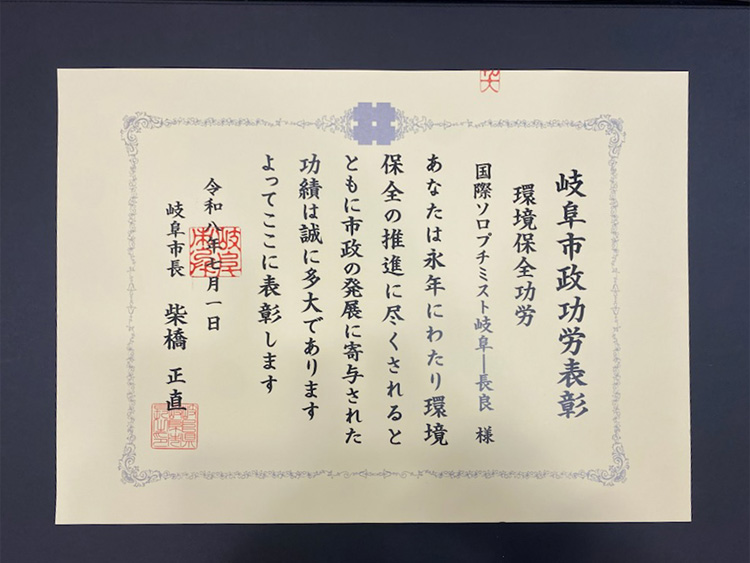 岐阜市政功労表彰
環境保全功労
国際ソロプチミスト岐阜―長良 様
あなたは永年にわたり環境
保全の推進に尽くされると
ともに市政の発展に寄与された
功績は誠に多大であります
よってここに表彰します
令和八年七月一日
岐阜市長 柴橋 正直